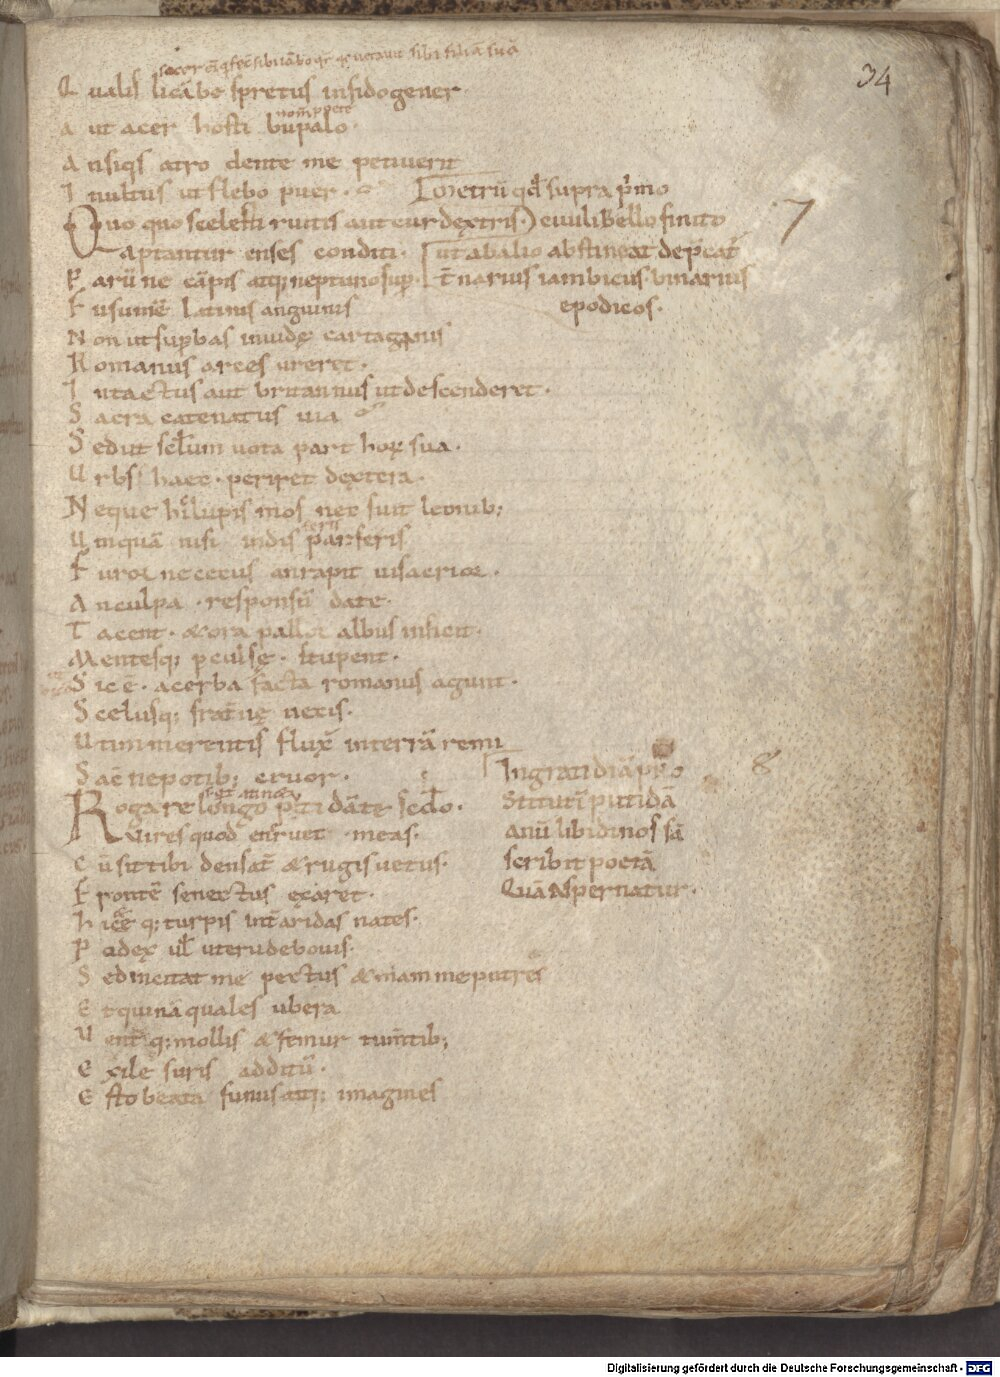 34
Qualis licābe spretus infido gener
Aut acer hostis bupalo.
An siqs atro dente me petiuerit
Inultus ut flebo puer.
Quo quo scelesti ruitis aut cur dextris
aptantur enses conditi.
Parū ne cāpis atq; neptuno sup.
Fusum ē latini anguinis
Non ut supbas inuidę cartaginis
Romanus arces ureret.
Intactus aut britannus ut descenderet.
Sacra catenatus uia
Sed ut
uota
sua.
Urbs haec. periret dextera.
Neque hic lupis mos nec fuit leonib;
Umquā nisi
feris
Furor ne cecus an rapit uis acrior.
An culpa. responsū date.
Tacent. & ora pallor albus inficit.
Mentesq; pculsę. stupent.
Sic ē. acerba facta romanus agunt.
Scelusq; fratnę necis.
Ut inmerentis flux̄ in terrā remi
Sac̄ nepotib; cruor.
Rogare longo
Uires quod eneruet meas.
Cū sit tibi dens at̄ & rugis uetus.
Frontē senectus exaret.
turpis int̄ aridas nates.
Podex
Sed incitat me pectus & mammę putres
Equina quales ubera
Uent̄q; mollis & femur tum̄tib;
Exile suris additū.
Esto beata funus atq; imagines
nom̄ poete
Metrū qđ supra p̄mo
ciuili bello finito
ut ab alio abstineat dep̄cat̄
t̄narius iambicus. binarius
epodicos.
7
8
Ingratidiā
putidā
Anū libidinosā
scribit poetā
Quā aspernatur.
Digitalisierung gefördert durch die Deutsche Forschungsgemeinschaft - DFG